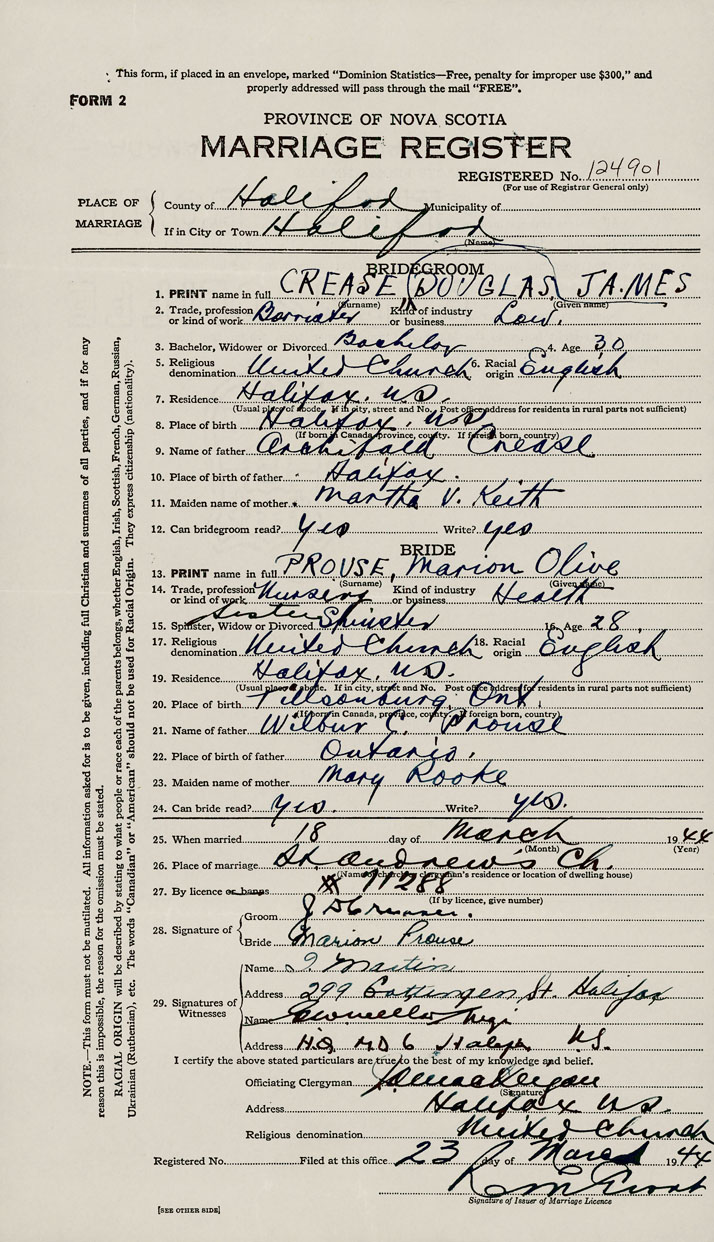 This form, if placed in an envelope, marked "Dominion Statistics—Free, penalty for improper use $300," and
properly addressed will pass through the mail "FREE".
FORM 2
PROVINCE OF NOVA SCOTIA
MARRIAGE REGISTER
REGISTERED No. 124901
(For use of Registrar General only)
PLACE OF MARRIAGE
County of Halifax Municipality of
If in City or Town Halifax
(Name)
BRIDEGROOM
1. PRINT name in full CREASE DOUGLAS JAMES
(Surname) (Given name)
2. Trade, profession or kind of work Barrister Kind of industry or business Law.
3. Bachelor, Widower or Divorced Bachelor 4. Age 30
5. Religious denomination United Church 6. Racial origin English
7. Residence Halifax, N.S.
(Usual place of abode. If in city, street and No. Post office address for residents in rural parts not sufficient)
8. Place of birth Halifax, N.S.
(If born in Canada, province, county. If foreign born, country)
9. Name of father Archibald Crease
10. Place of birth of father Halifax.
11. Maiden name of mother Martha V. Keith
12. Can bridegroom read? Yes Write? yes
BRIDE
13. PRINT name in full PROUSE, Marion Olive
(Surname) (Given name)
14. Trade, profession or kind of work Nursing Kind of industry or business Health
Sister
15. Spinster, Widow or Divorced Spinster 16. Age 28
17. Religious denomination United Church 18. Racial origin English
19. Residence Halifax, N.S.
(Usual place of abode. If in city, street and No. Post office address for residents in rural parts not sufficient)
20. Place of birth Tillsonburg, Ont.
(If born in Canada, province, county. If foreign born, country)
21. Name of father Wilbur C. Prouse
22. Place of birth of father Ontario.
23. Maiden name of mother Mary Rooke
24. Can bride read? Yes. Write? yes.
25. When married 18 day of March 1944
(Month) (Year)
26. Place of marriage St. Andrew's Ch.
(Name of church, clergyman's residence or location of dwelling house)
27. By licence or banns # 71288
(If by licence, give number)
28. Signature of
Groom
Bride Marion Prouse
29. Signatures of Witnesses
Name Martin
Address 299 Gottingen St. Halifax
Name
Address H.Q. M.D 6 Halifax N.S.
I certify the above stated particulars are true to the best of my knowledge and belief.
Officiating Clergyman
(Signature)
Address Halifax N.S.
Religious denomination United Church
Registered No. Filed at this office 23 day of March 1944
Signature of Issuer of Marriage Licence
[SEE OTHER SIDE]
NOTE.—This form must not be mutilated. All information asked for is to be given, including full Christian and surnames of all parties, and if for any
reason this is impossible, the reason for the omission must be stated.
RACIAL ORIGIN will be described by stating to what people or race each of the parents belongs, whether English, Irish, Scottish, French, German, Russian,
Ukrainian (Ruthenian), etc. The words "Canadian" or "American" should not be used for Racial Origin. They express citizenship (nationality).